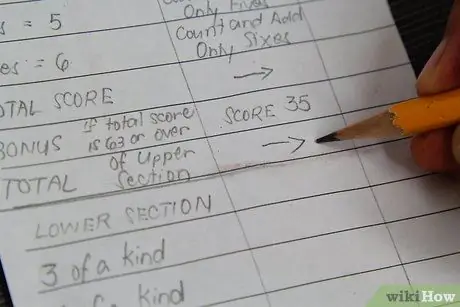 Only Fives
s = 5
Count and Add
Only Sixes
es = 6
OTAL SCORE →
BONUS if total score is 63 or over SCORE 35
TOTAL of upper section →
LOWER SECTION
3 of a kind
of a kind
wikiHow